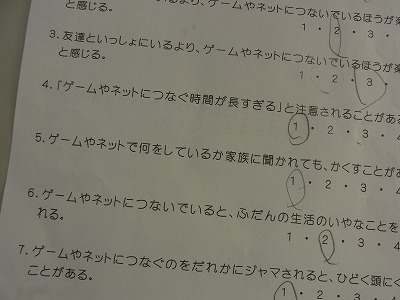 いるより、ゲームやネットにつないでいるほうが楽
と感じる。
1 ・ 2 ・ 3 ・
3. 友達といっしょにいるより、ゲームやネットにつないでいるほうが楽
と感じる。
1 ・ 2 ・ 3 ・
4. 「ゲームやネットにつなぐ時間が長すぎる」と注意されることがある
1 ・ 2 ・ 3 ・ 4
5. ゲームやネットで何をしているか家族に聞かれても、かくすことがあ
1 ・ 2 ・ 3 ・ 4
6. ゲームやネットにつないでいると、ふだんの生活のいやなことを
れる。
1 ・ 2 ・ 3 ・ 4
7. ゲームやネットにつなぐのをだれかにジャマされると、ひどく頭に
ことがある。
1 ・ 2 ・ 3 ・